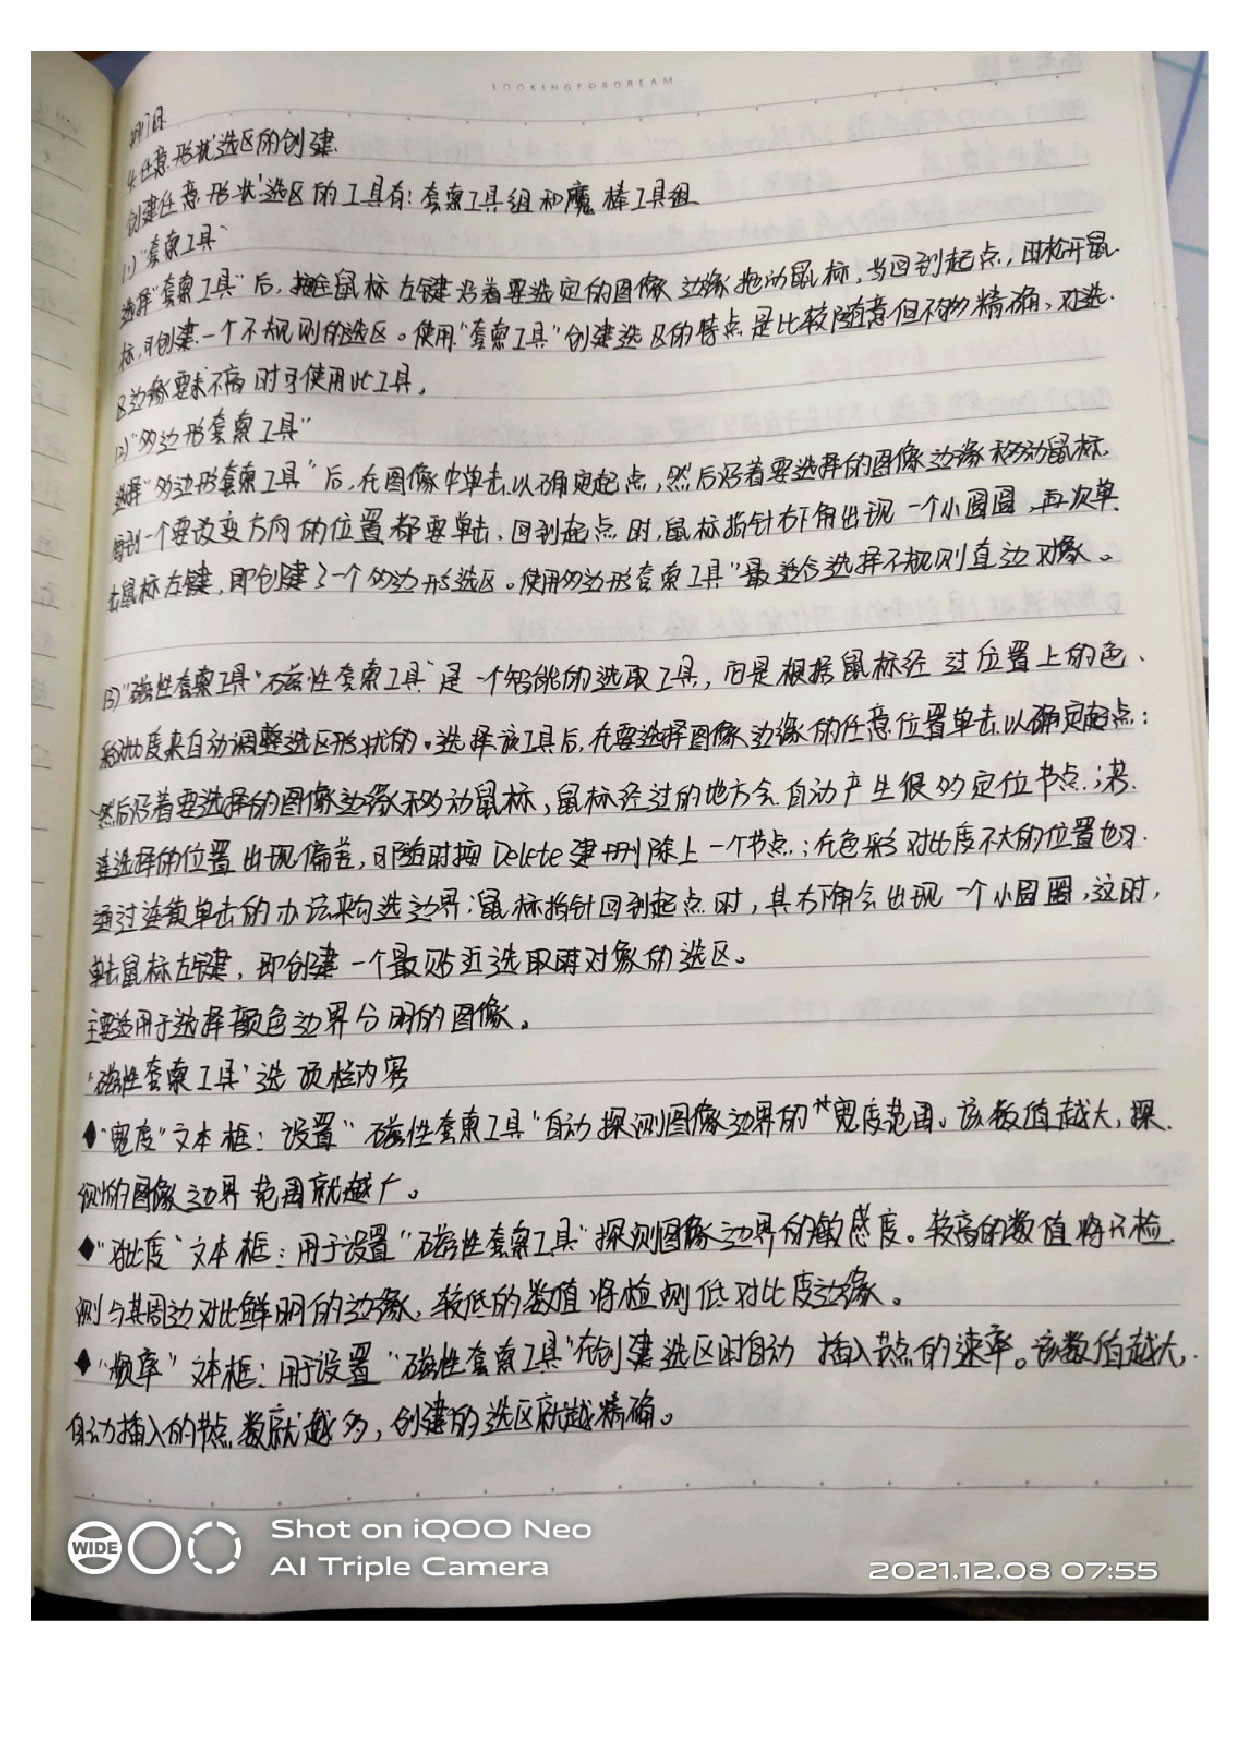 LOOKINGFORDREAM
4.任意形状选区的创建
创建任意形状选区的工具有：套索工具组和魔棒工具组
(1)"套索工具"
选择"套索工具"后，按住鼠标左键沿着要选定的图像边缘拖动鼠标，当回到起点，时松开鼠
标，可创建一个不规则的选区。使用"套索工具"创建选区的特点是比较随意但不够精确，对选
区边缘要求不高时可使用此工具。
(2)"多边形套索工具"
选择"多边形套索工具"后，在图像中单击以确定起点，然后沿着要选择的图像边缘移动鼠标，
每到一个要改变方向的位置都要单击，回到起点时，鼠标指针右下角出现一个小圆圈，再次单
击鼠标左键，即创建了一个多边形选区。使用多边形套索工具"最适合选择不规则直边对象。
(3)"磁性套索工具"磁性套索工具"是一个智能的选取工具，它是根据鼠标经过位置上的色
彩对比度来自动调整选区形状的。选择该工具后，在要选择图像边缘的任意位置单击以确定起点；
然后沿着要选择的图像边缘移动鼠标，鼠标经过的地方会自动产生很多定位节点；若
选择的位置出现偏差，可随时按Delete建删除上一个节点；在色彩对比度不大的位置也可
通过连续单击的办法来勾选边界；鼠标指针回到起点时，其右下角会出现一个小圆圈，这时，
单击鼠标左键，即创建一个最贴近选取对象的选区。
主要适用于选择颜色边界分明的图像。
"磁性套索工具"选项栏内容
◆"宽度"文本框：设置"磁性套索工具"自动探测图像边界的宽度范围。该数值越大，探
测的图像边界范围就越广。
◆"对比度"文本框：用于设置"磁性套索工具"探测图像边界的敏感度。较高的数值将只检
测与其周边对比鲜明的边缘，较低的数值将检测低对比度边缘。
◆"频率"文本框：用于设置"磁性套索工具"在创建选区时自动插入节点的速率。该数值越大，
自动插入的节点数就越多，创建的选区就越精确。
WIDE
Shot on iQOO Neo
AI Triple Camera
2021.12.08 07:55